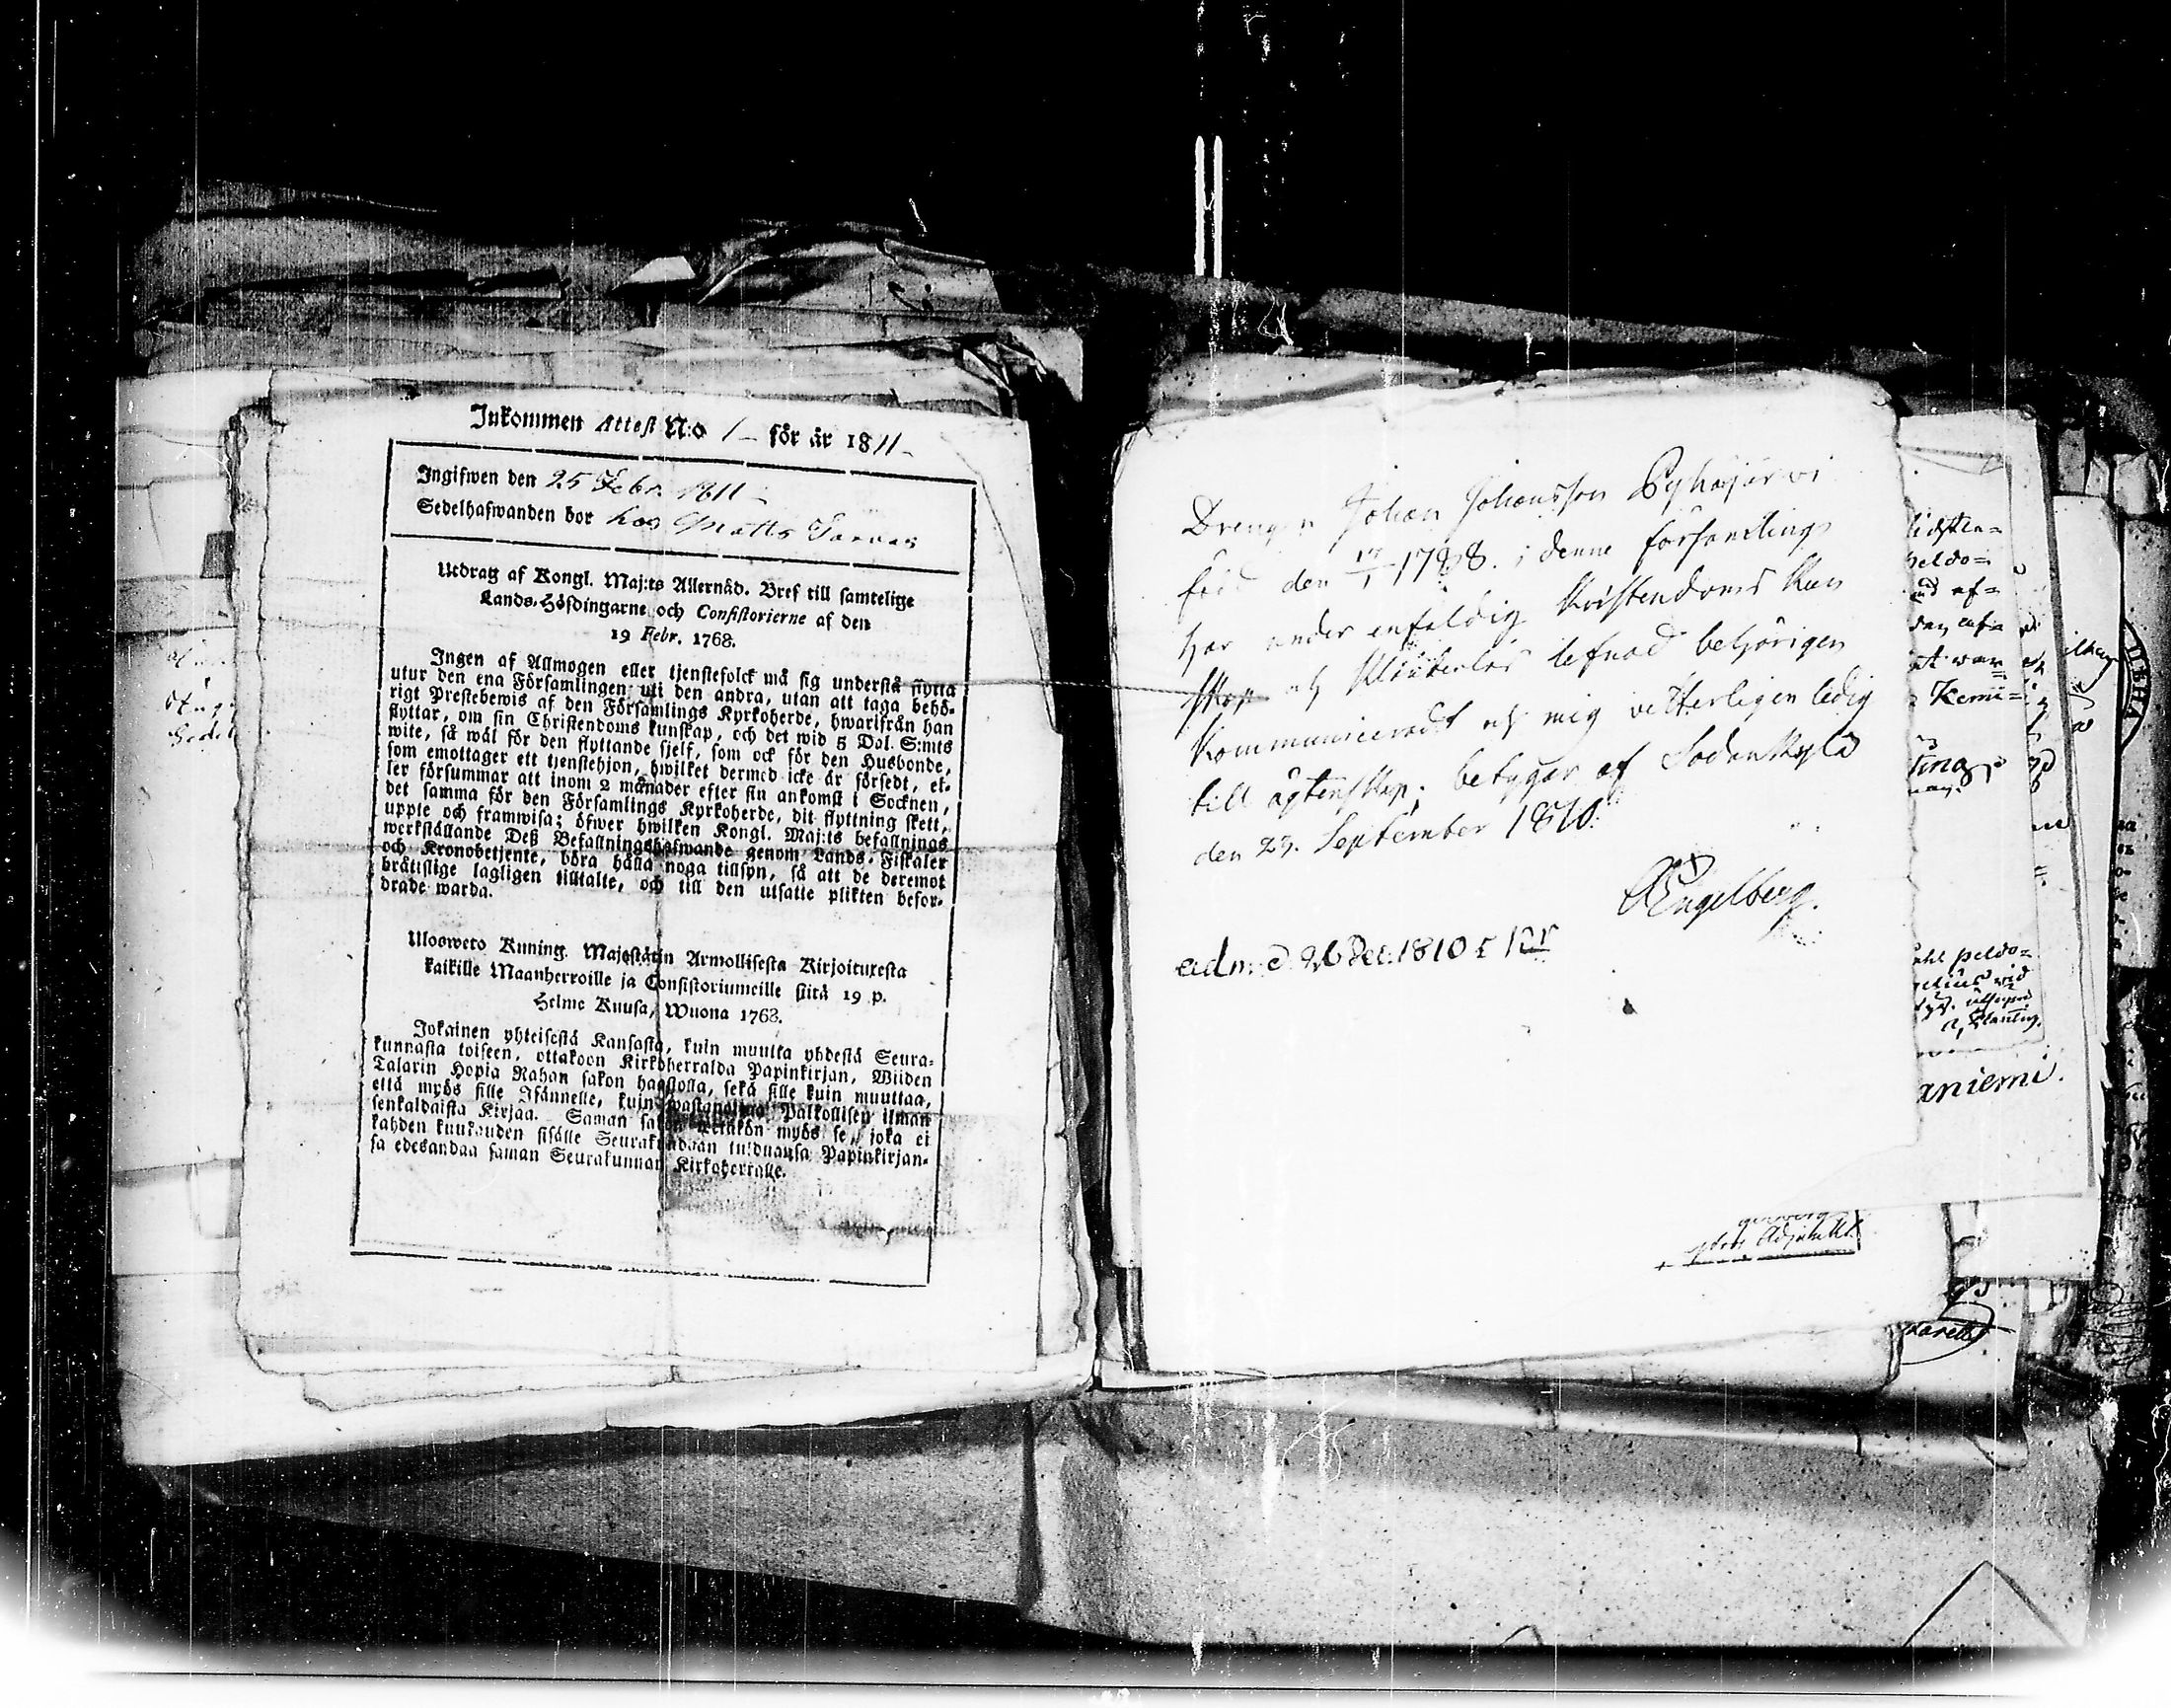 Inkommen Attest N:o 1 för år 1811
Ingifwen den 25 Febr. 1811
Sedelhafwanden bor hos Matts
Utdrag af Kongl. Maj:ts Allernåd. Bref till samtelige
Lands-Höfdingarne och Consistorierne af den
19 Febr. 1768.
Ingen af Allmogen eller tjenstefolck må sig understå flytta
utur den ena Församlingen uti den andra, utan att taga behö-
rigt Prestebewis af den Församlings Kyrkoherde, hwarifrån han
flyttar, om sin Christendoms kunskap, och det wid 5 Dal. S:mts
wite, så wäl för den flyttande sjelf, som ock för den Husbonde,
som emottager ett tjenstehjon, hwilket dermed icke är försedt, el-
ler försummar att inom 2 månader efter sin ankomst i Socknen,
det samma för den Församlings Kyrkoherde, dit flyttning skett,
uppte och framwisa; öfwer hwilken Kongl. Maj:ts befallnings
werkställande Deß Befallningshafwande genom Lands-Fiskaler
och Kronobetjente, böra hålla noga tillsyn, så att de deremot
brättslige lagligen tilltalte, och till den utsatte plikten befor-
drade warda.
Ulosweto Kuning. Majestätin Armollisesta Kirjoituxesta
kaikille Maanherroille ja Consistoriumeille siitä 19 p.
Helme Kuusa, Wuona 1768.
Jokainen yhteisestä Kansasta, kuin muutta yhdestä Seura-
kunnasta toiseen, ottakoon Kirkoherralda Papinkirjan, Wiiden
Talarin Hopia Rahan sakon haastolla, sekä sille kuin muuttaa,
että myös sille Isännelle, kuin wastanottaa Palkollisen ilman
senkaldaista Kirjaa. Saman sakon wetäkön myös se, joka ei
kahden kuukauden sisälle Seurakundaan tulduansa Papinkirjan-
sa edesandaa saman Seurakunnan Kirkoherralle.
Drengen Johan Johansson Pyhäjärvi
född den 17/1 1788. i denne församling
har under enfaldig Kristendoms kun
skap och Klanderlös lefnad behörigen
Kommuniceradt och mig vitterligen ledig
till ägtenskap; betygar af Sodankylä
den 29. September 1810.
Engelberg.
adm. d. 26 Dec. 1810
Kemi
aniemi.